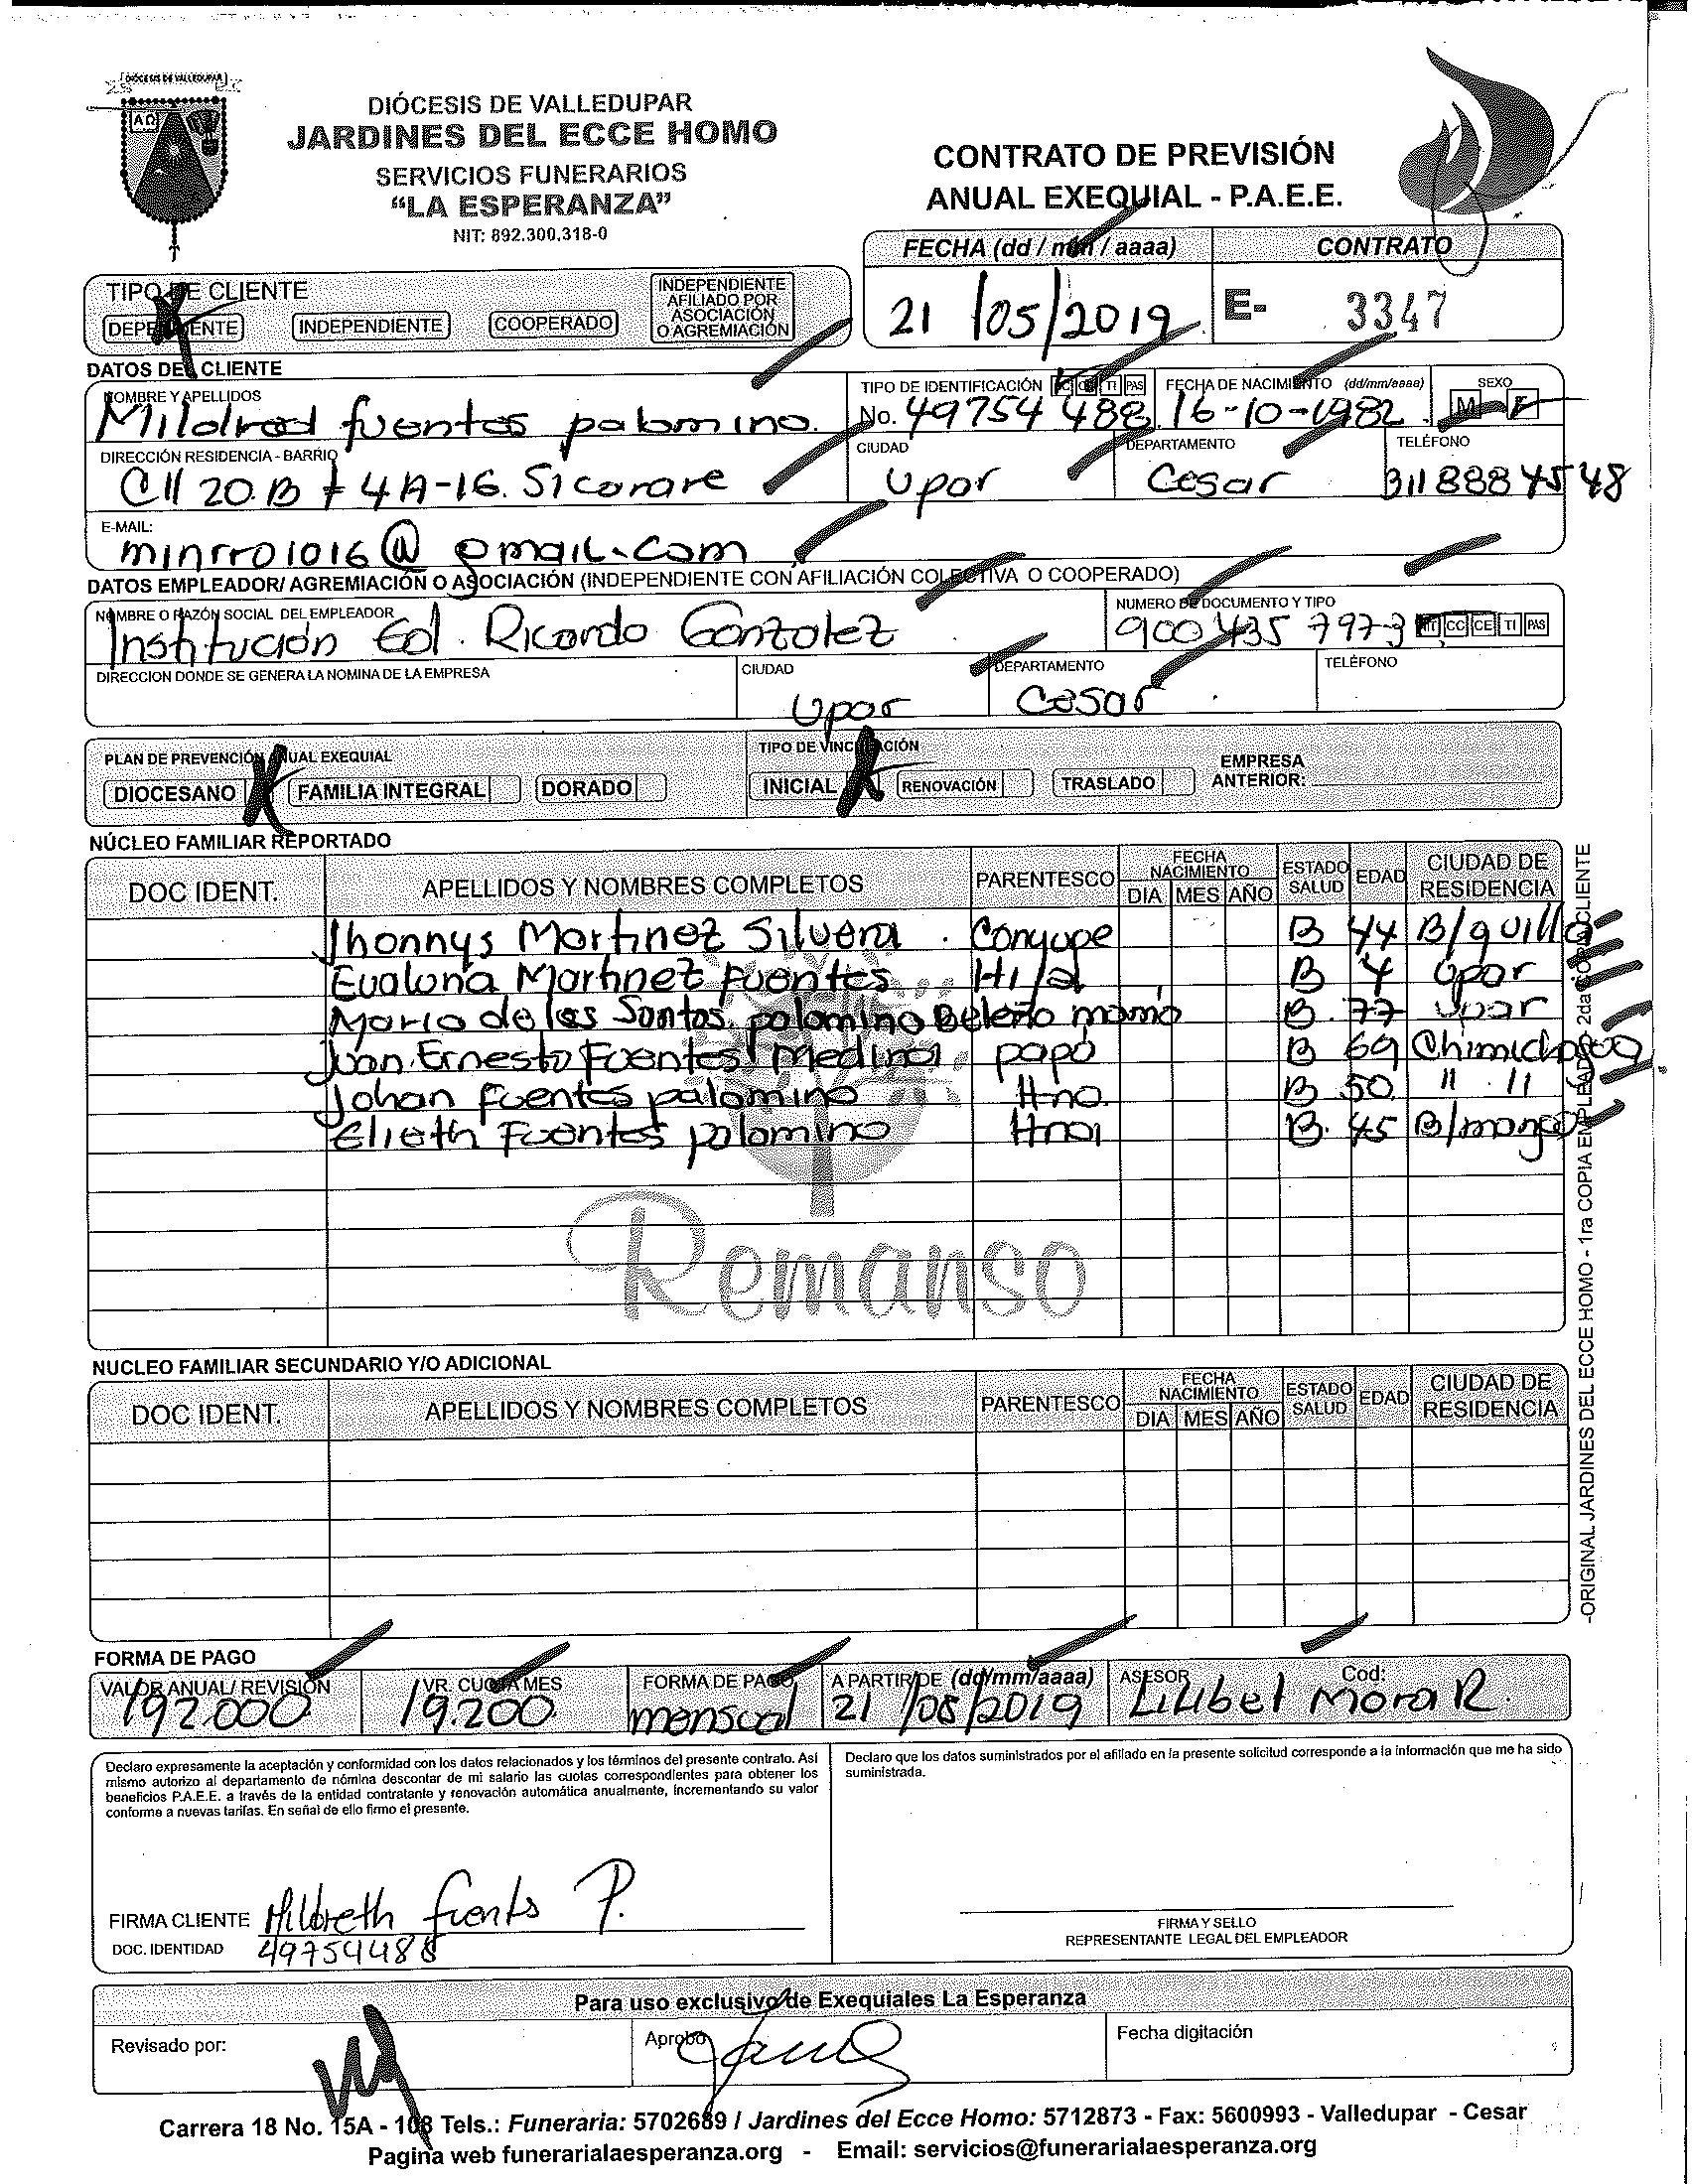 DIÓCESIS DE VALLEDUPAR
DIÓCESIS DE VALLEDUPAR
JARDINES DEL ECCE HOMO
SERVICIOS FUNERARIOS
“LA ESPERANZA”
NIT: 892.300.318-0
CONTRATO DE PREVISIÓN
ANUAL EXEQUIAL - P.A.E.E.
FECHA (dd / mm / aaaa) CONTRATO
21 /05/2019 E- 3347
TIPO DE CLIENTE
DEPENDIENTE INDEPENDIENTE COOPERADO INDEPENDIENTE AFILIADO POR ASOCIACIÓN O AGREMIACIÓN
DATOS DEL CLIENTE
NOMBRE Y APELLIDOS TIPO DE IDENTIFICACIÓN CC CE TI PAS FECHA DE NACIMIENTO (dd/mm/aaaa) SEXO
Mildred fuentes palomino. No. 49754 488 16-10-1982 M F
DIRECCIÓN RESIDENCIA - BARRIO CIUDAD DEPARTAMENTO TELÉFONO
Cll 20.B # 4A-16. Sicorare Upar Cesar 311888 4548
E-MAIL:
minrro1016@gmail.com
DATOS EMPLEADOR/ AGREMIACIÓN O ASOCIACIÓN (INDEPENDIENTE CON AFILIACIÓN COLECTIVA O COOPERADO)
NOMBRE O RAZÓN SOCIAL DEL EMPLEADOR NUMERO DE DOCUMENTO Y TIPO
Institución Eol. Ricardo Gonzalez 900 435 797-3 NIT CC CE TI PAS
DIRECCION DONDE SE GENERA LA NOMINA DE LA EMPRESA CIUDAD DEPARTAMENTO TELÉFONO
Upar Cesar
PLAN DE PREVENCIÓN ANUAL EXEQUIAL TIPO DE VINCULACIÓN EMPRESA
DIOCESANO FAMILIA INTEGRAL DORADO INICIAL RENOVACIÓN TRASLADO ANTERIOR:
NÚCLEO FAMILIAR REPORTADO
DOC IDENT. APELLIDOS Y NOMBRES COMPLETOS PARENTESCO FECHA NACIMIENTO DIA MES AÑO ESTADO SALUD EDAD CIUDAD DE RESIDENCIA
Jhonnys Martinez Silvera. Conyuge B 44 B/quilla
Evaluna Martinez Fuentes Hija B 4 Upar
Maria de los Santos palomino Beleño mamá B. 77 Upar
Juan Ernesto Fuentes Medina papá B 69 Chimichagua
Johan Fuentes palomino Hno. B 50. " "
Elieth Fuentes palomino Hna B. 45 B/manga
Remanso
NUCLEO FAMILIAR SECUNDARIO Y/O ADICIONAL
DOC IDENT. APELLIDOS Y NOMBRES COMPLETOS PARENTESCO FECHA NACIMIENTO DIA MES AÑO ESTADO SALUD EDAD CIUDAD DE RESIDENCIA
-ORIGINAL JARDINES DEL ECCE HOMO - 1ra COPIA EMPLEADO 2da COPIA CLIENTE
FORMA DE PAGO
VALOR ANUAL/ REVISIÓN VR. CUOTA MES FORMA DE PAGO A PARTIR DE (dd/mm/aaaa) ASESOR Cod:
192.000 19.200 mensual 21 /05/2019 Lilibet Mora R.
Declaro expresamente la aceptación y conformidad con los datos relacionados y los términos del presente contrato. Así
mismo autorizo al departamento de nómina descontar de mi salario las cuotas correspondientes para obtener los
beneficios P.A.E.E. a través de la entidad contratante y renovación automática anualmente, incrementando su valor
conforme a nuevas tarifas. En señal de ello firmo el presente.
Declaro que los datos suministrados por el afiliado en la presente solicitud corresponde a la información que me ha sido
suministrada.
FIRMA CLIENTE Mildreth fuents P.
DOC. IDENTIDAD 49754488
FIRMA Y SELLO
REPRESENTANTE LEGAL DEL EMPLEADOR
Para uso exclusivo de Exequiales La Esperanza
Revisado por: Aprobó Fecha digitación
Carrera 18 No. 15A - 108 Tels.: Funeraria: 5702689 / Jardines del Ecce Homo: 5712873 - Fax: 5600993 - Valledupar - Cesar
Pagina web funerarialaesperanza.org - Email: servicios@funerarialaesperanza.org